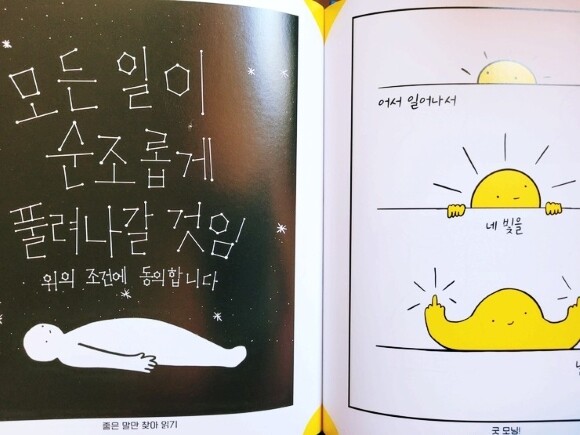 모든 일이
순조롭게
풀려나갈 것임
위의 조건에 동의합니다
좋은 말만 찾아 읽기
어서 일어나서
네 빛을
굿 모닝!